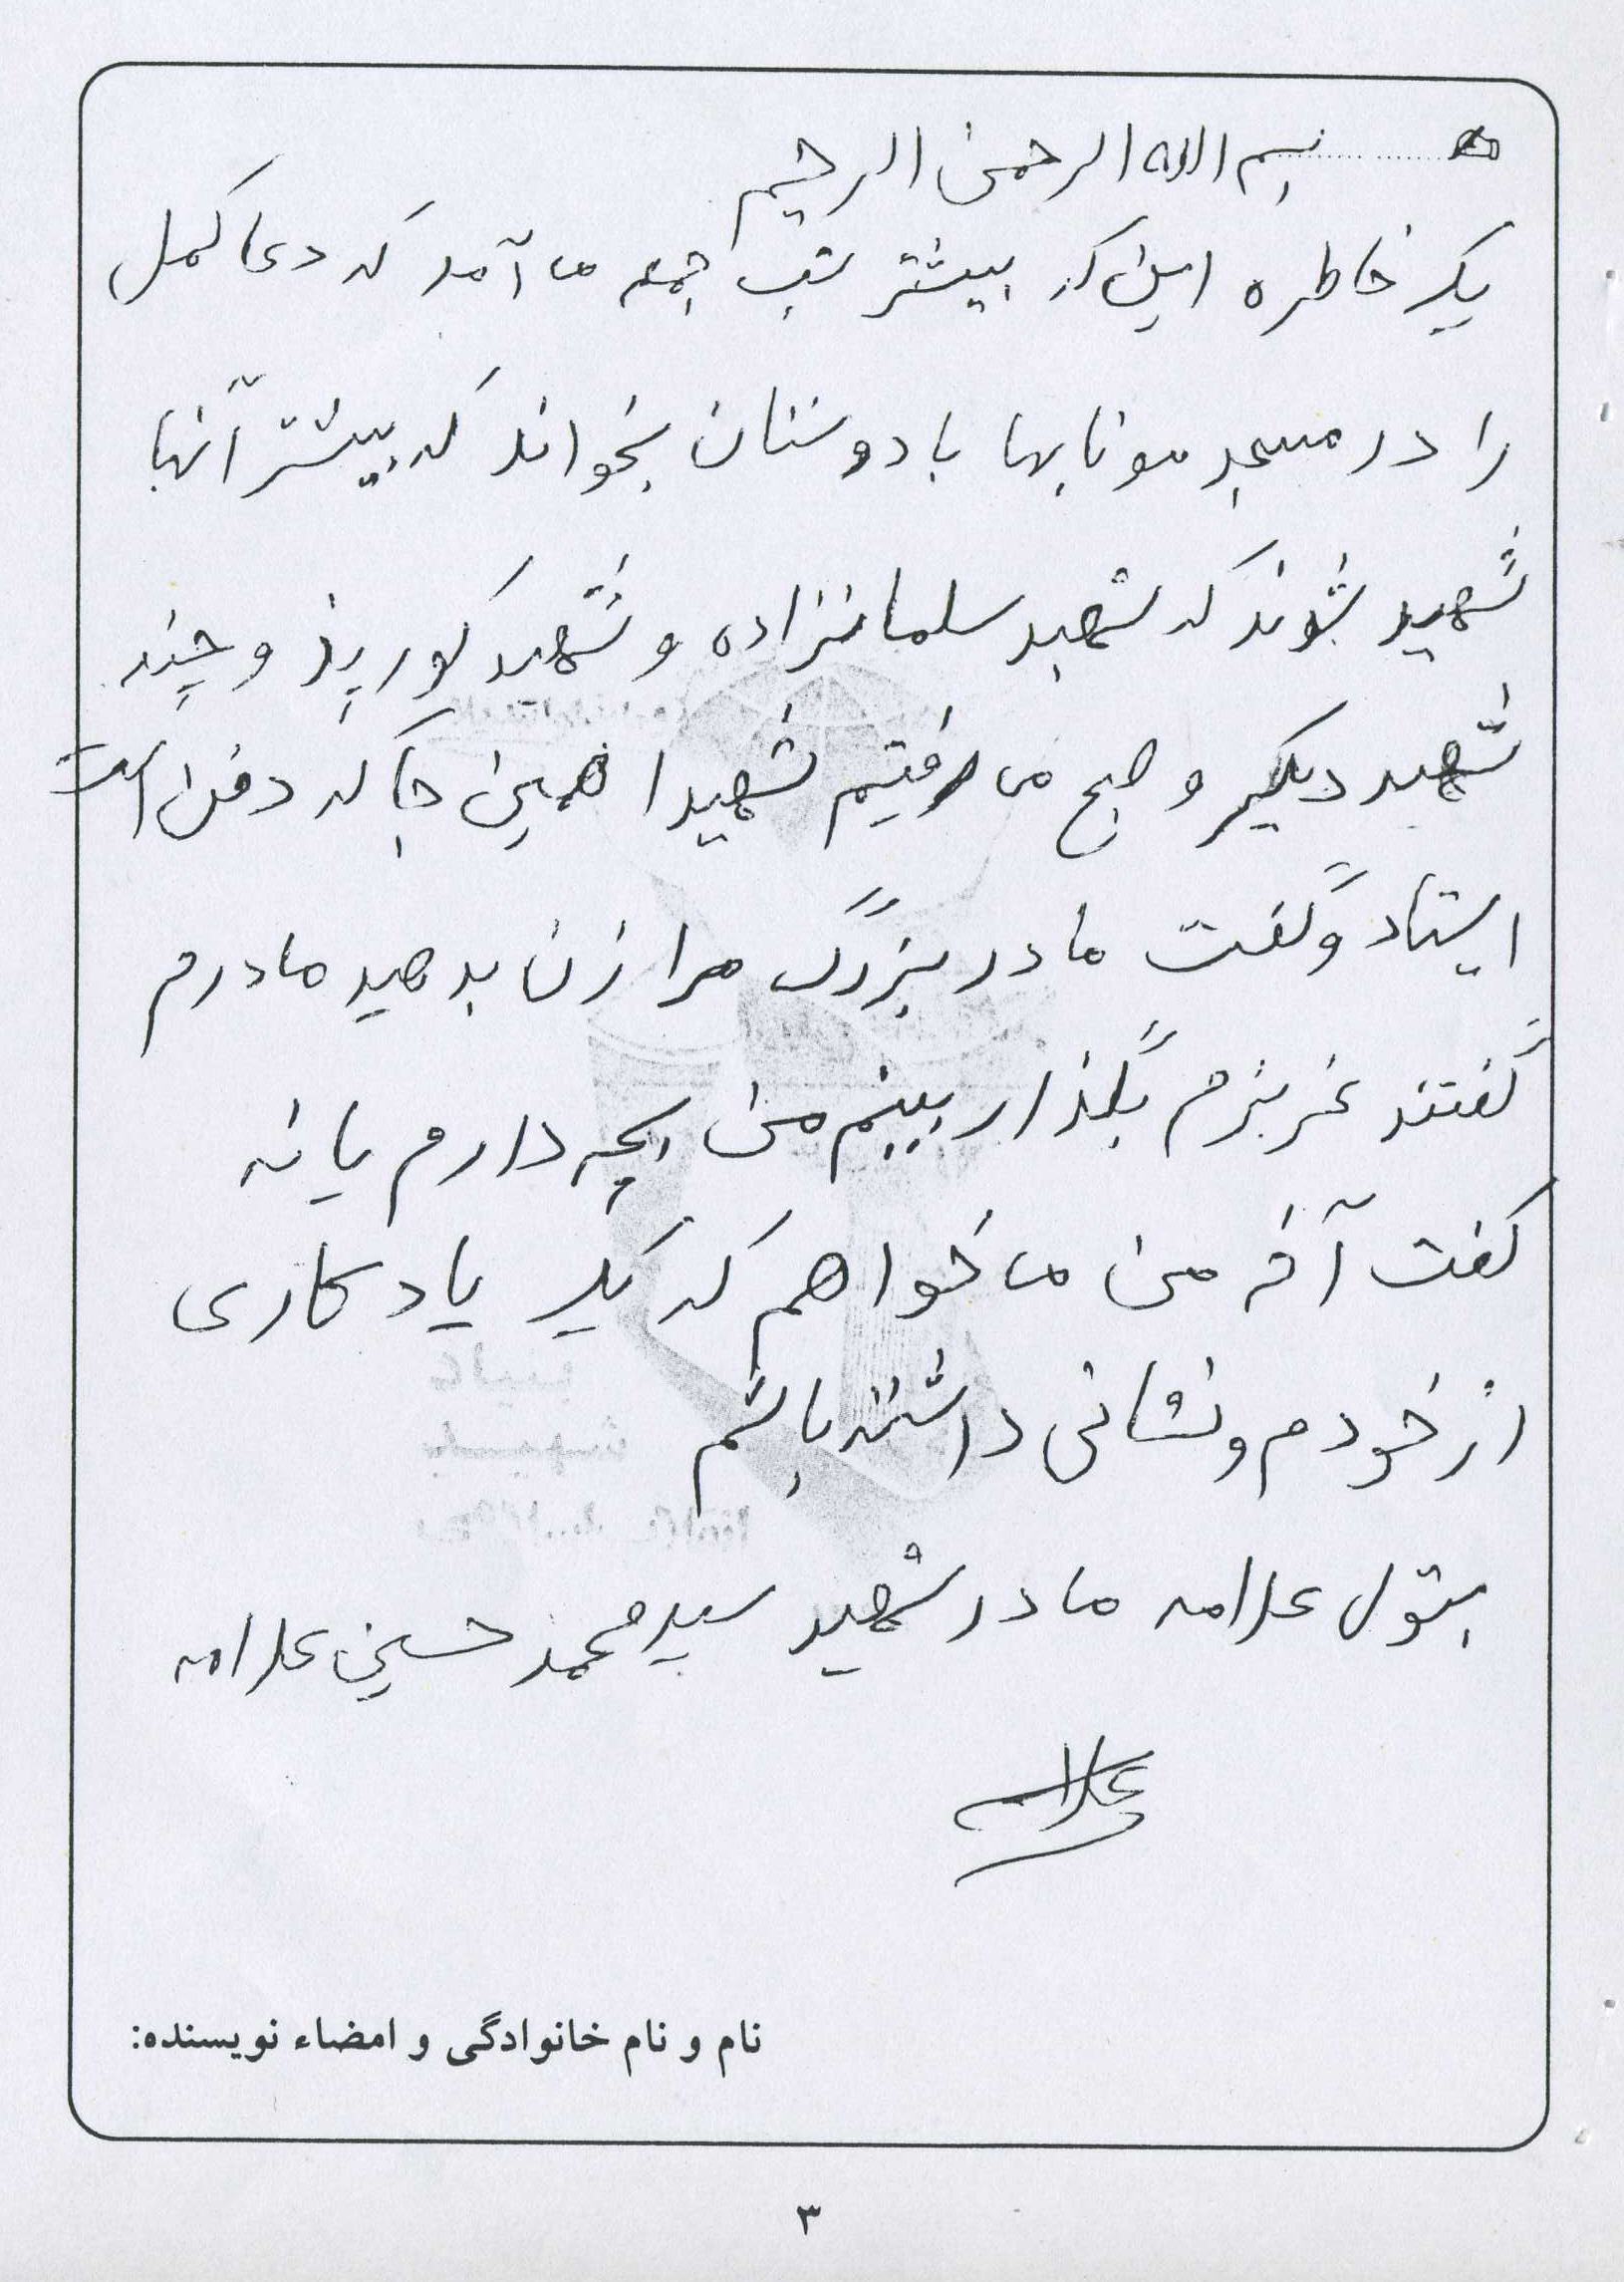 بسم الله الرحمن الرحیم
یک خاطره این که بیشتر شب جمعه ما آمد که دعا کمل
را در مسجد مونابها با دوستان بخواند که بیشتر آنها
شهید شوند که شهید سلمانزاده و شهید و چند
شهید دیگیر و صبح می رفتیم شهیدا همین جا که دفن است
ایستاد و گفت مادر بزرگ مرا زن بدهید مادرم
گفتند عزیزم بگذار ببینم من بچه دارم یا نه
گفت آخر من ما خواهم که یک یادکاری
از خودم و نشانی داشته باشم
بتول علامه مادر شهید سید محمد حسین علامه
علامه
نام و نام خانوادگی و امضاء نویسنده:
۳